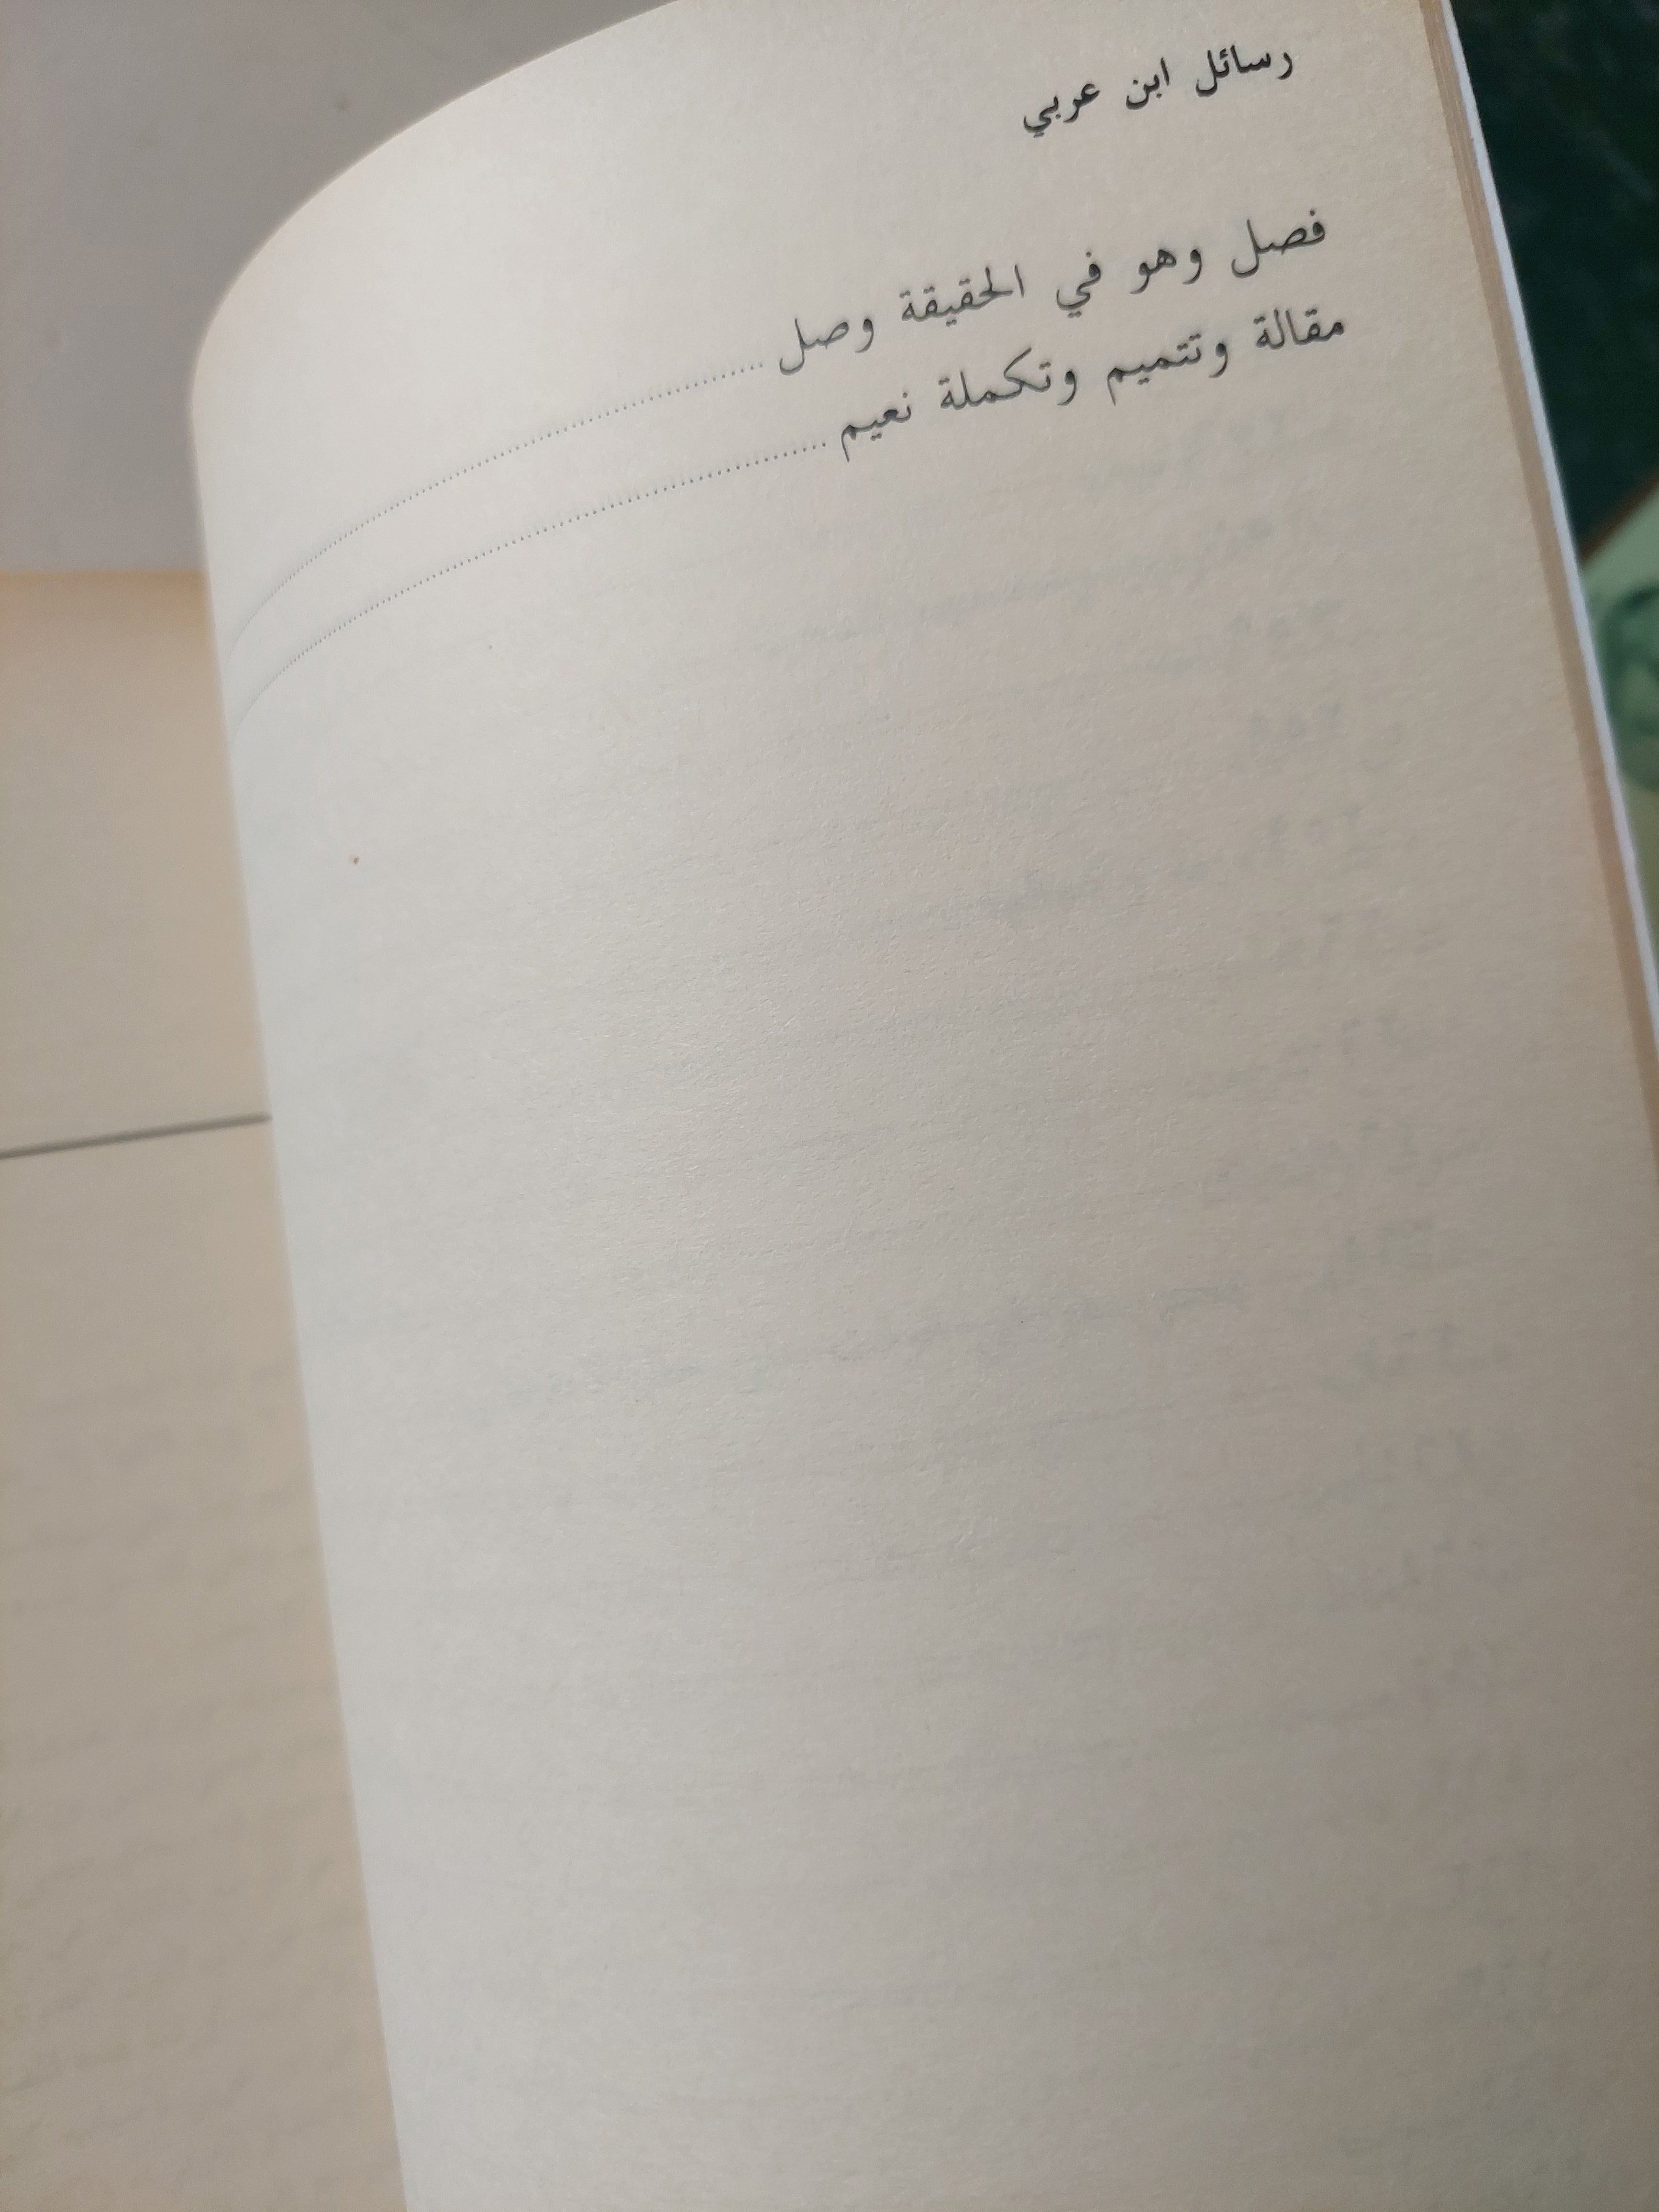 رسائل ابن عربي
فصل وهو في الحقيقة وصل ..........
مقالة وتتميم وتكملة نعيم ..........